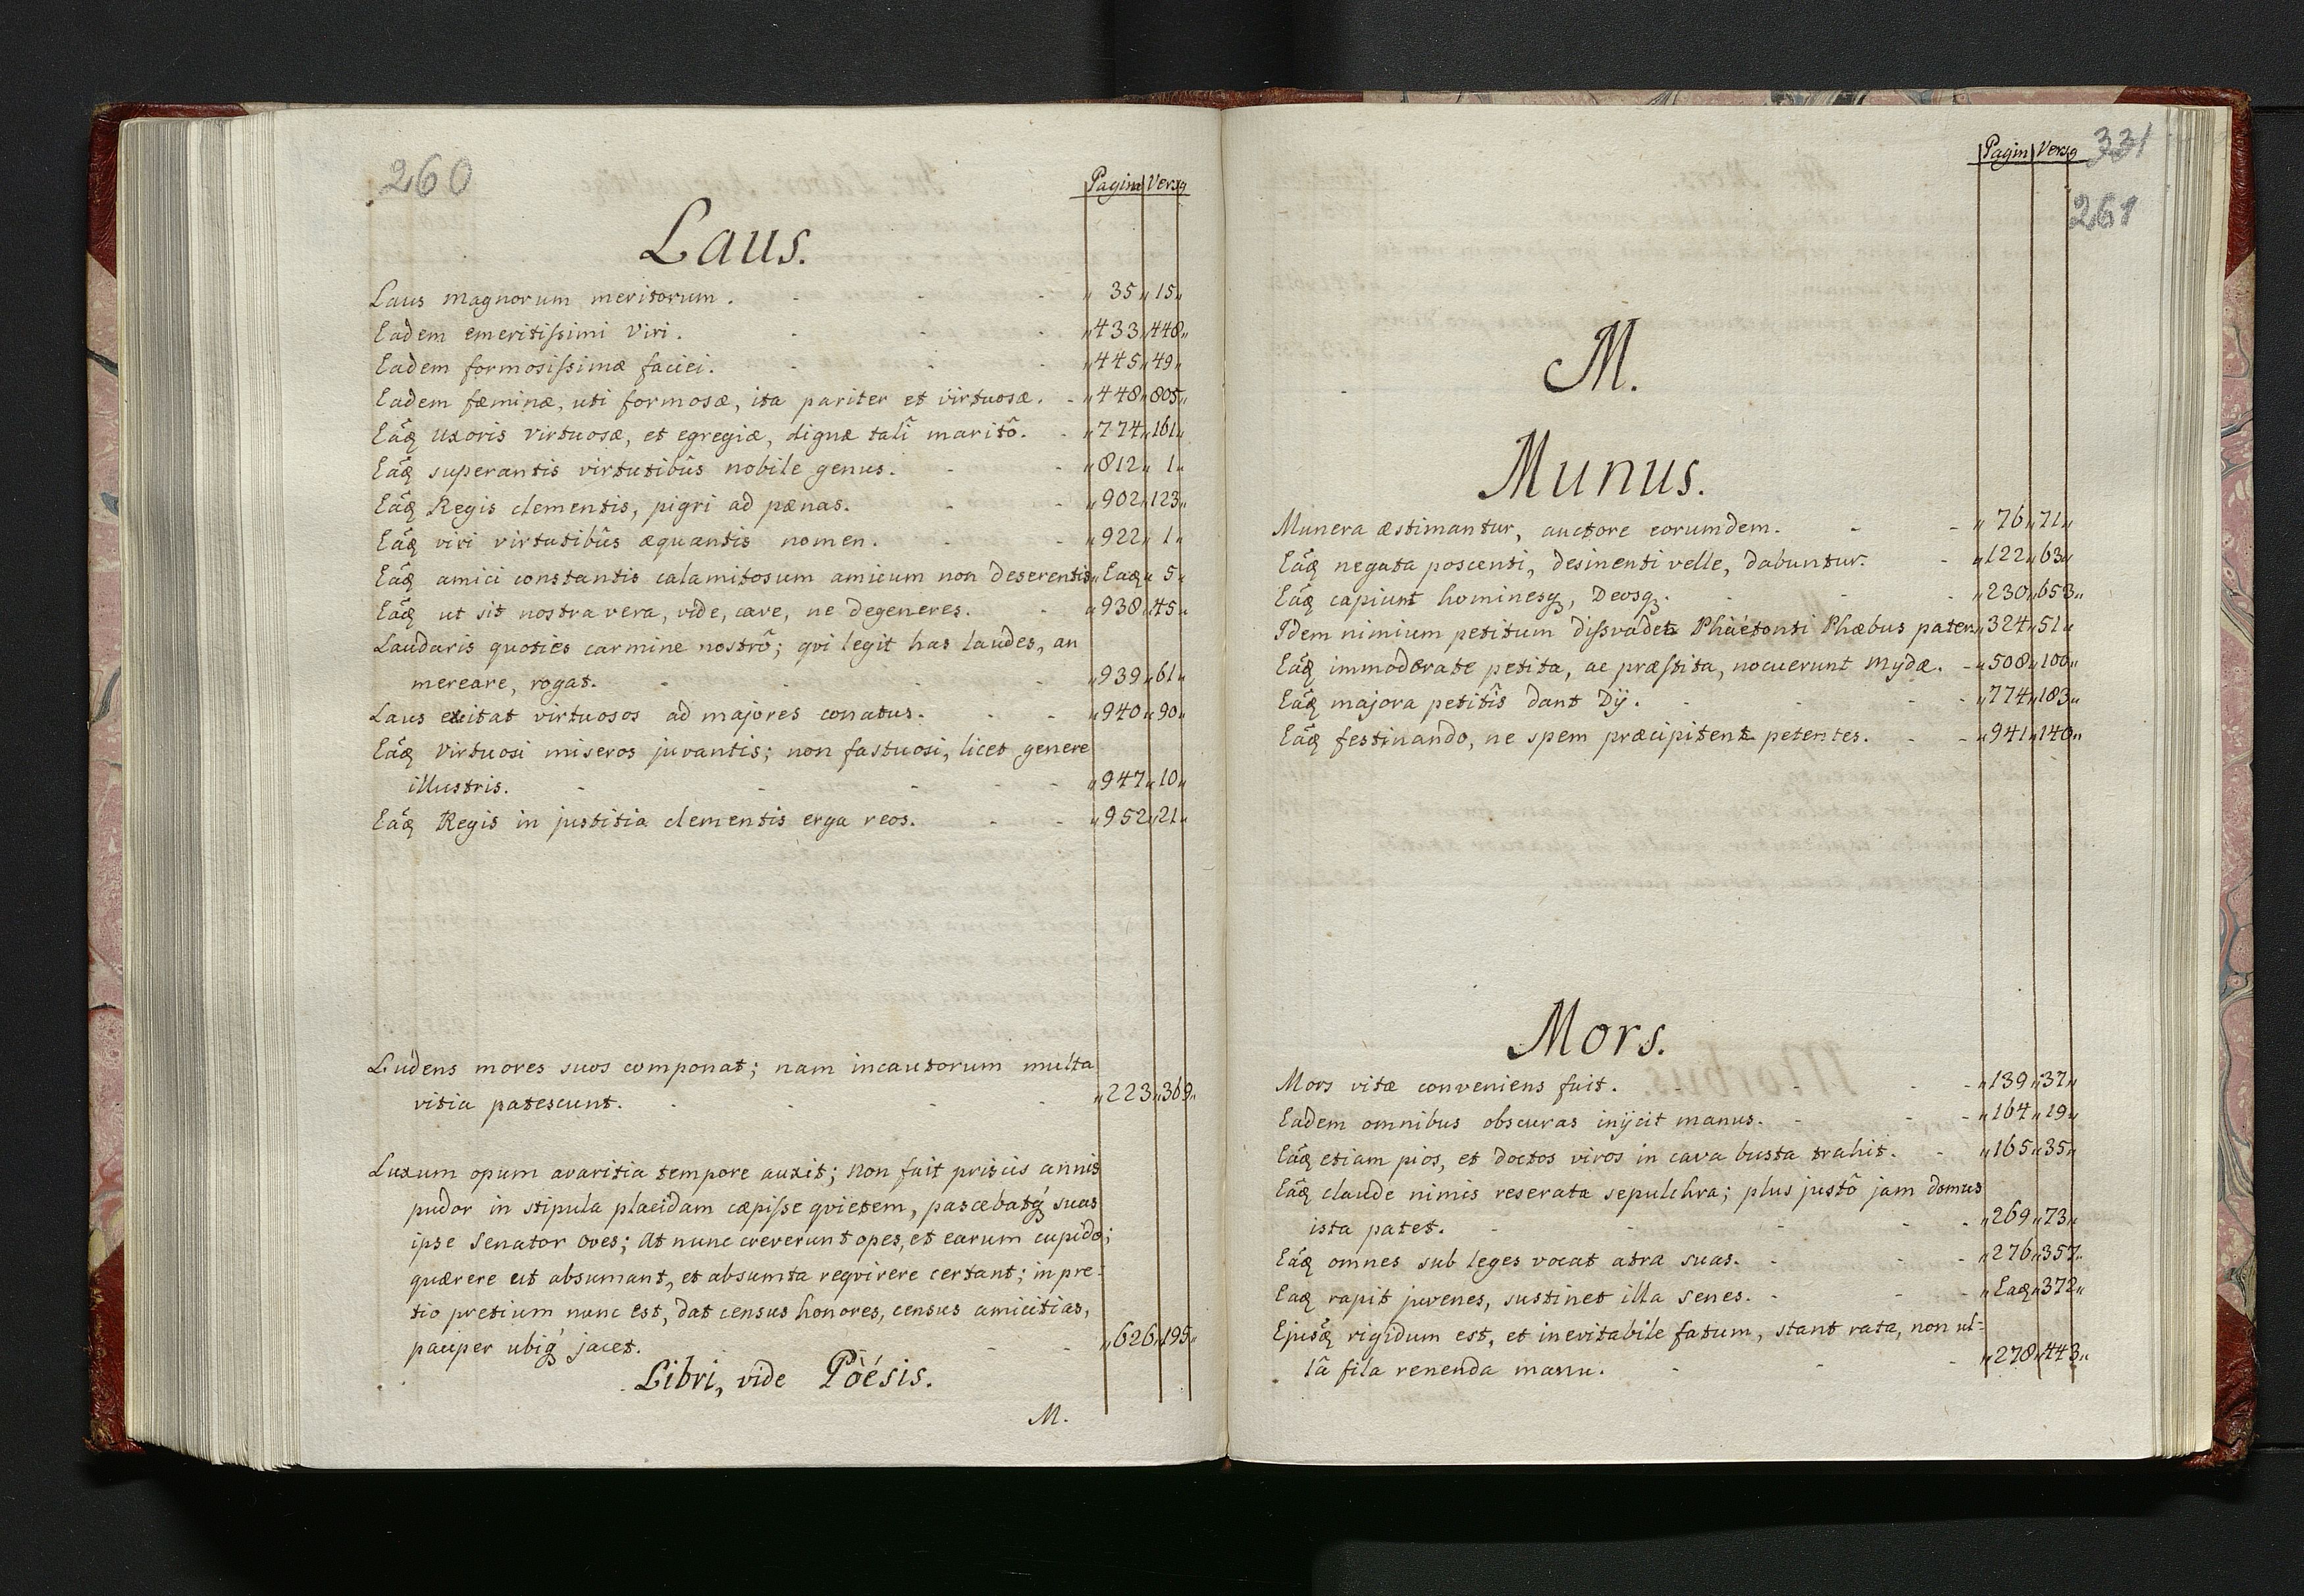 260
Pagina Versꝯ
Laus.
Laus magnorum meritorum. „ 35 „ 15 „
Eadem emeritissimi Viri. „ 433 „ 448 „
Eadem formosissimæ faciei. „ 445 „ 49 „
Eadem fæminæ, uti formosæ, ita pariter et virtuosæ. „ 448 „ 805 „
Eáq̃ uxoris virtuosæ, et egregiæ, dignæ talî maritô. „ 774 „ 161 „
Eáq̃ superantis virtutibûs nobile genus. „ 812 „ 1 „
Eáq̃ Regis clementis, pigri ad pænas. „ 902 „ 123 „
Eáq̃ viri virtutibûs æquantis nomen. „ 922 „ 1 „
Eáq̃ amici constantis calamitosum amicum non deserentis „ Eaq̃ „ 5 „
Eáq̃ ut sit nostra vera, vide, cave, ne degeneres. „ 938 „ 45 „
Laudaris quoties carmine nostrô; qvi legit has laudes, an
mereare, rogat. „ 939 „ 61 „
Laus excitat virtuosos ad majores conatus. „ 940 „ 90 „
Eáq̃ Virtuosi miseros juvantis; non fastuosi, licet genere
illustris. „ 947 „ 10 „
Eáq̃ Regis in justitia clementis erga reos. „ 952 „ 21 „
Ludens mores suos componat; nam incautorum multa
vitia patescunt. „ 223 „ 369 „
Luxum opum avaritia tempore auxit; non fuit priscis annis
pudor in stipula placidam cæpisse qvietem, pascebatq́ suas
ipse Senator oves; At nunc creverunt opes, et earum cupido;
quærere ut absumant, et absumta reqvirere certant; in pre-
tio pretium nunc est, dat census honores, census amicitias,
pauper ubiq́ jacet. „ 626 „ 195 „
Libri, vide Pöésis.
M.
Pagin Versꝯ 331
261
M.
Munus.
Munera æstimantur, auctore eorumdem. „ 76 „ 71 „
Eáq̃ negata poscenti, desinenti velle, dabuntur. „ 122 „ 63 „
Eáq̃ capiunt hominesq́, Deosq́. „ 230 „ 653 „
Idem nimium petitum dissvadet Phäétonti Phæbus pater „ 324 „ 51 „
Eáq̃ immoderate petita, ac præstita, nocuerunt Mydæ. „ 508 „ 100 „
Eáq̃ majora petitîs dant Dÿ. „ 774 „ 183 „
Eáq̃ festinando, ne spem præcipitent petentes. „ 941 „ 140 „
Mors.
Mors vitæ conveniens fuit. „ 139 „ 37 „
Eadem omnibus obscuras inÿcit manus. „ 164 „ 19 „
Eáq̃ etiam pios, et doctos viros in cava busta trahit. „ 165 „ 35 „
Eáq̃ claude nimis reserata sepulchra; plus justô jam domus
ista patet. „ 269 „ 73 „
Eáq̃ omnes sub leges vocat atra suas. „ 276 „ 357 „
Eaq̃ rapit juvenes, sustinet illa senes. „ Eaq̃ „ 372 „
Ejusq̃ rigidum est, et inevitabile fatum, stant rata, non ul-
lâ fila renenda manu. „ 278 „ 443 „